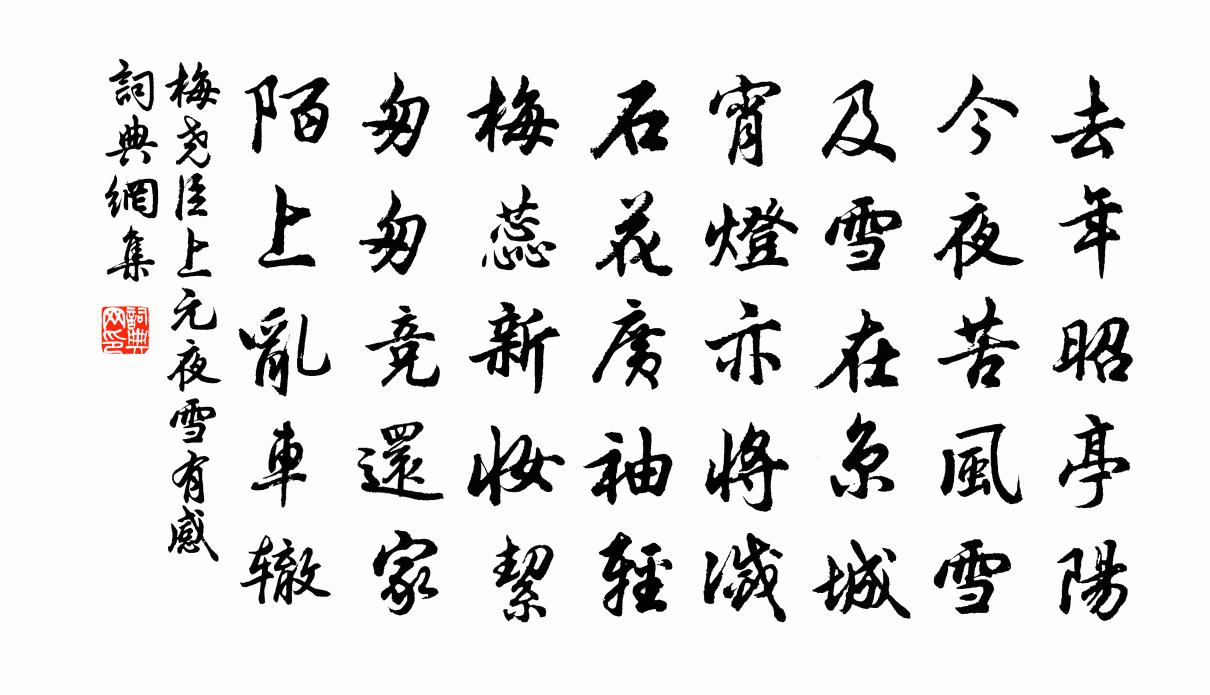 去年昭亭陽
今夜苦風雪
及雪在京城
宵燈亦將滅
石花廣袖輕
梅蕊新妝潔
匆匆競還家
陌上亂車轍
梅堯臣上元夜雪有感
詞典網集
詞典网印